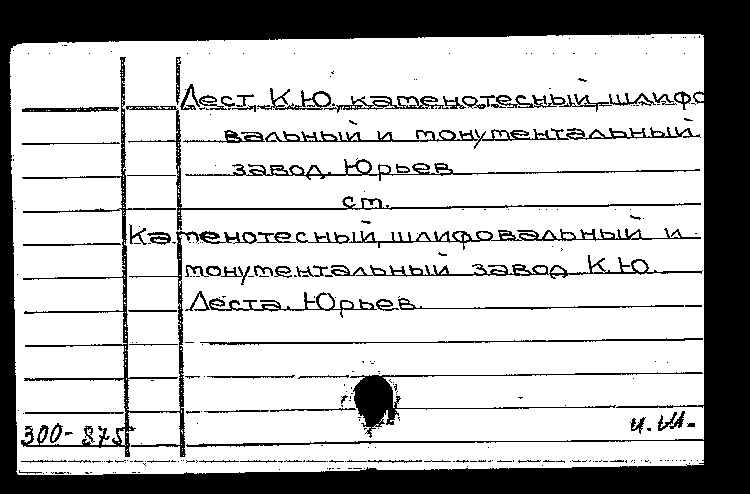 Лест, К.Ю., каменотесный, шлифо
вальный и монументальный
завод. Юрьев
см.
Каменотесный, шлифовальный и
монументальный завод К.Ю.
Леста. Юрьев.
300-875
и.Ш.